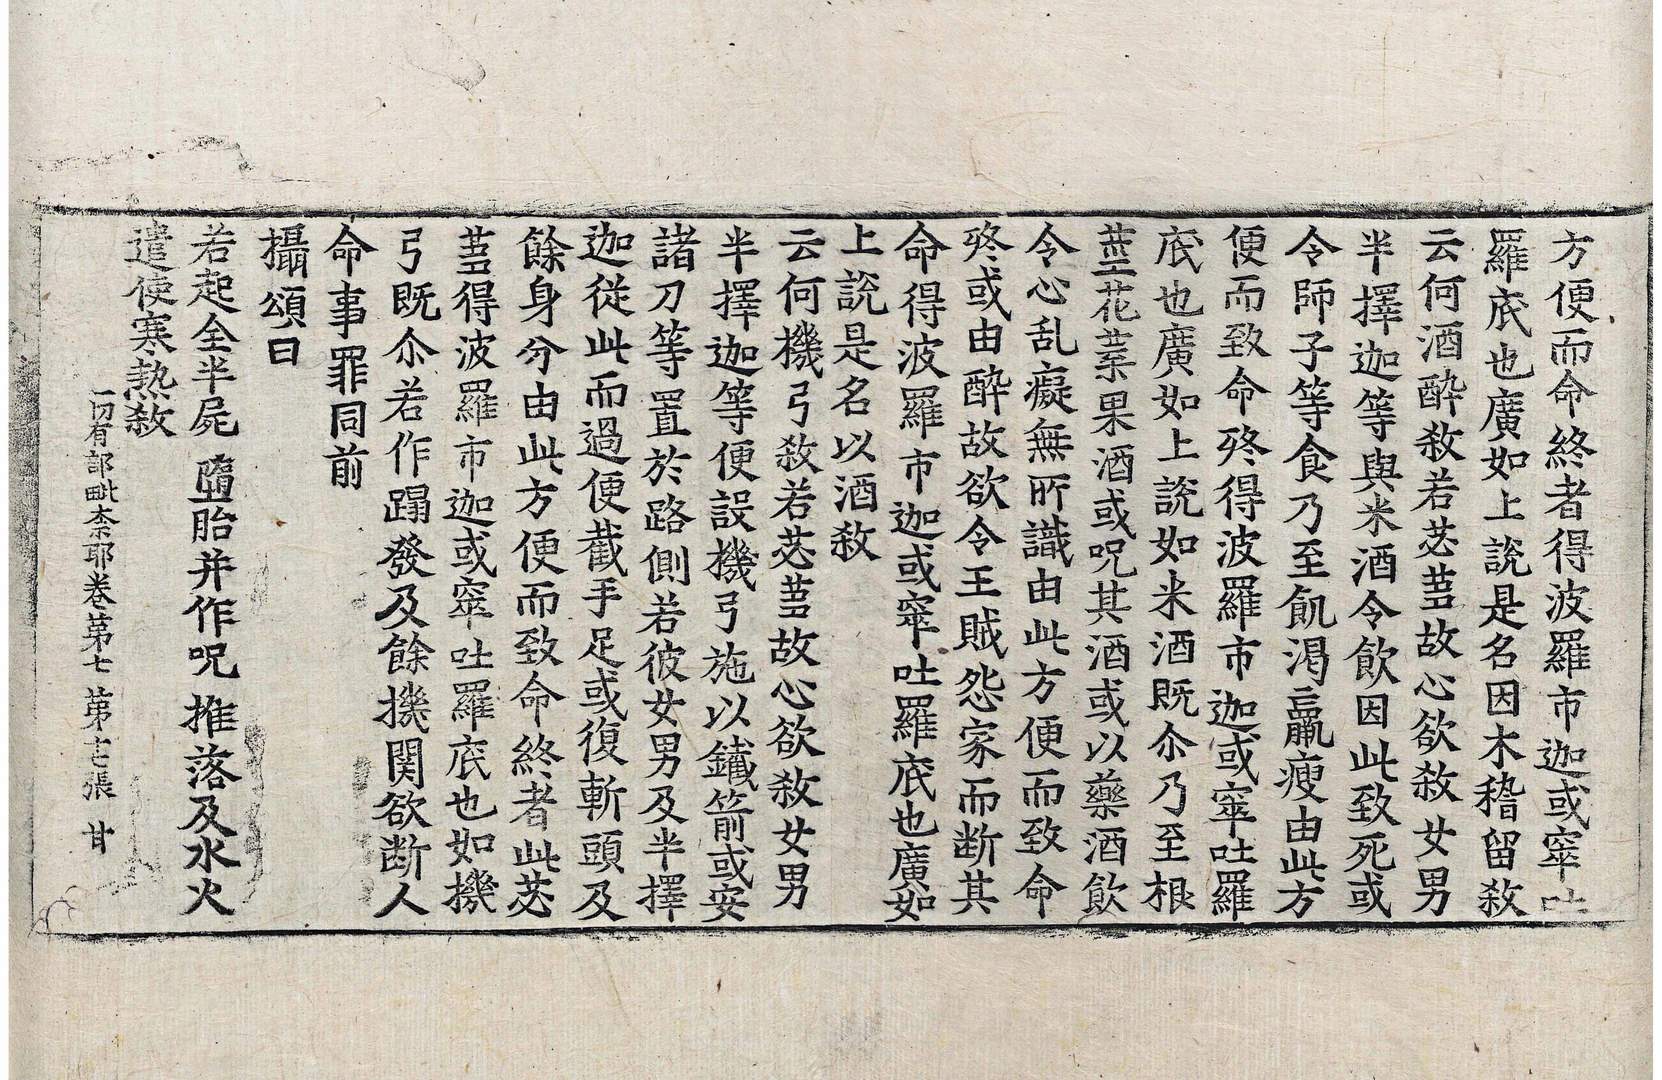 方便而命終者得波羅市迦或窣吐
羅底也廣如上說是名因木稽留敎
云何酒醉敎若苾芻故心欲敎女男
半擇迦等與米酒令飲因此致死或
令師子等食乃至飢渴羸瘦由此方
便而致命終得波羅市迦或窣吐羅
底也廣如上說如米酒既尒乃至根
莖花葉果酒或呪其酒或以藥酒飲
令心乱癡無所識由此方便而致命
終或由醉故欲令王賊怨家而断其
命得波羅市迦或窣吐羅底也廣如
上說是名以酒敎
云何機弓敎若苾芻故心欲敎女男
半擇迦等便設機弓施以鐵箭或安
諸刀等置於路側若彼女男及半擇
迦從此而過便截手足或復斬頭及
餘身分由此方便而致命終者此苾
芻得波羅市迦或窣吐羅底也如機
弓既尒若作蹋發及餘機関欲断人
命事罪同前
攝頌曰
若起全半屍 墮胎并作呪 推落及水火
遣使寒熱敎
一切有部毗柰耶卷第七 第十七張 甘